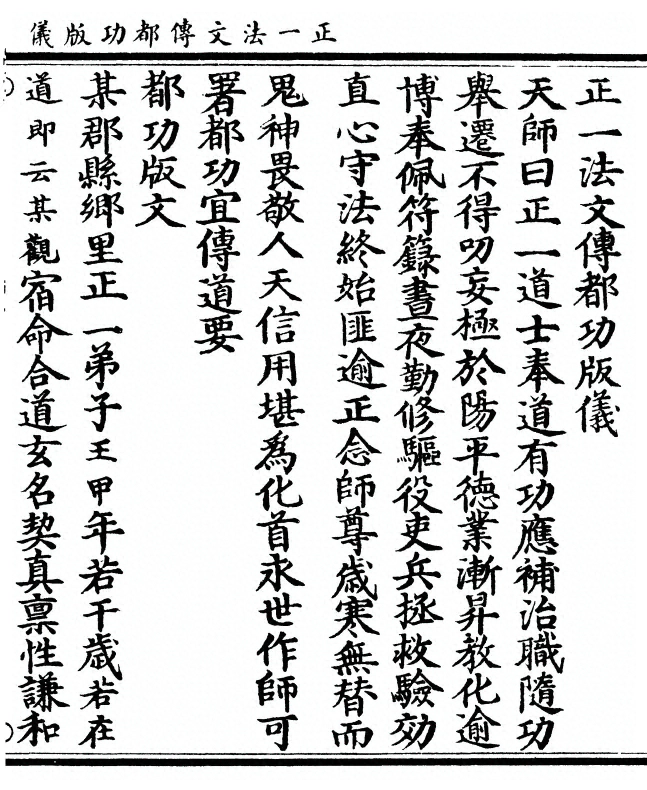 正一法文傳都功版儀
正一法文傳都功版儀
天師曰正一道士奉道有功應補治職隨功
舉遷不得叨妄極於陽平德業漸昇教化逾
博奉佩符籙晝夜勤修驅役吏兵拯救驗効
直心守法終始匪逾正念師尊歲寒無替而
鬼神畏敬人天信用堪爲化首永世作師可
署都功宜傳道要
都功版文
某郡縣鄉里正一弟子王甲年若干歲若在
道即云某觀宿命合道玄名契真禀性謙和